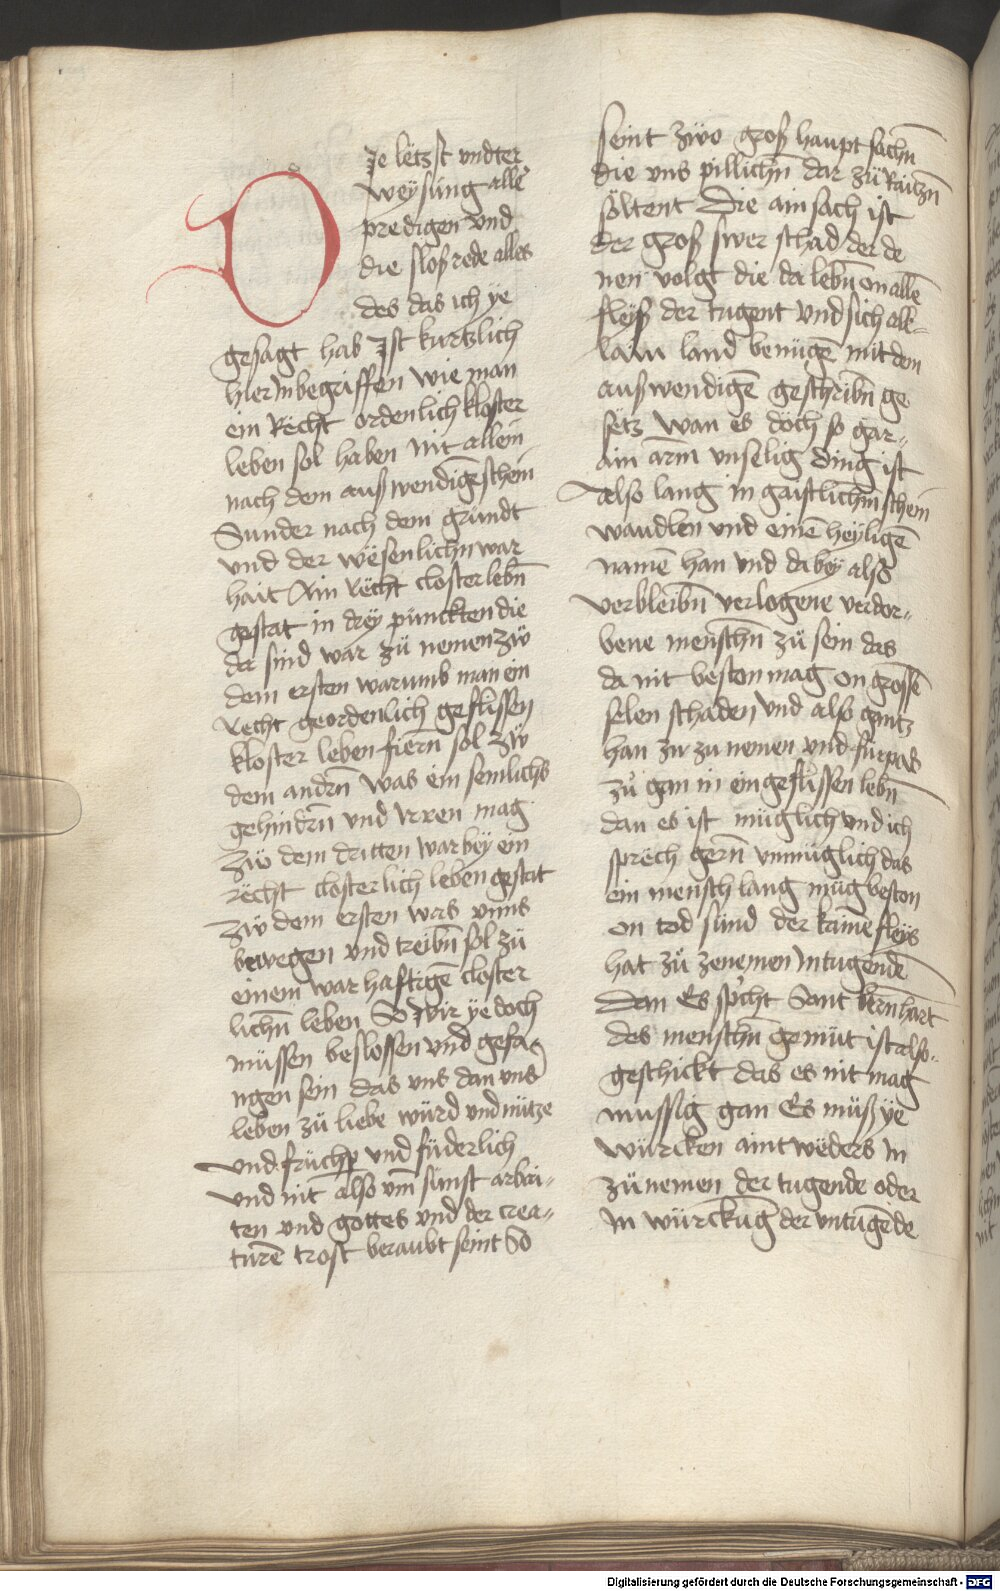 DJe letzst vndter
weysung alle͛
predigen vnd
die sloß rede alles
des das ich ye
gesagt hab Jst kurtzlich
hierJn begriffen wie man
ein Recht ordenlich kloster
leben sol haben nit allein
nach dem außwendigē schein
Sunder nach dem grundt
vnd der wësenlichn̄ war
hait Ain recht closter lebn̄
gestat in drey punckten die
da sind war zü nemen zü
dem ersten warumb man ein
recht geordenlich geflissen
kloster leben fiern̄ sol zü
dem andrn̄ was ein semlichs
gehindrn̄ vnd Jrren mag
zü dem dritten war bey ein
recht closterlich leben gestat
zü dem ersten was vnns
bewegen vnd treibn̄ sol zü
einem warhaftigē closter
lichn̄ leben So wir ye doch
müssen beslossen vnd gefa
ngen sein das vns dan vns
leben zü liebe würd vnd nütze
vnd frücħp vnd füderlich
vnd nit also vm̄ sunst arbai-
ten vnd gottes vnd der crea-
turē trost beraubt seint So
seint zwo groß haupt sachn̄
die vns pillichn̄ dar zü Raitzn̄
söltent Die ain sach ist
der groß swer schad der de
nen volgt die da lebn̄ on allē
fleyß der tugent vnd sich alk-
lain land benügē mit dem
außwendigē geschribn̄ ge
sëtz wan es doch so gar-
ain arm̄ vnselig ding ist
Also lang in gaistlichm̄ schein
wandlen vnd einē heyligē
namē han vnd da bey also
verbleibn̄ verlogene verdor-
bene menschn̄ zü sein das
da nit beston mag on grossē
selen schaden vnd also gantz
han zu zu nemen vnd fürpas
zü gan in ein geflissen lebn̄
dan es ist müglich vnd ich
sprëch gern̄ vnmüglich das
ein mensch lang müg beston
on tod sünd der kainē fleÿs
hat zü zenemen Jn tugendē
Dan Es sp͛cht Sant bern̄hart
des menschn̄ gemüt ist also-
geschickt das es nit mag
mussig gan Es müß ye
würcken aintwëders Jn
zünemen der tugende oder
Jn würckūg der vntugēde
Digitalisierung gefördert durch die Deutsche Forschungsgemeinschaft - DFG